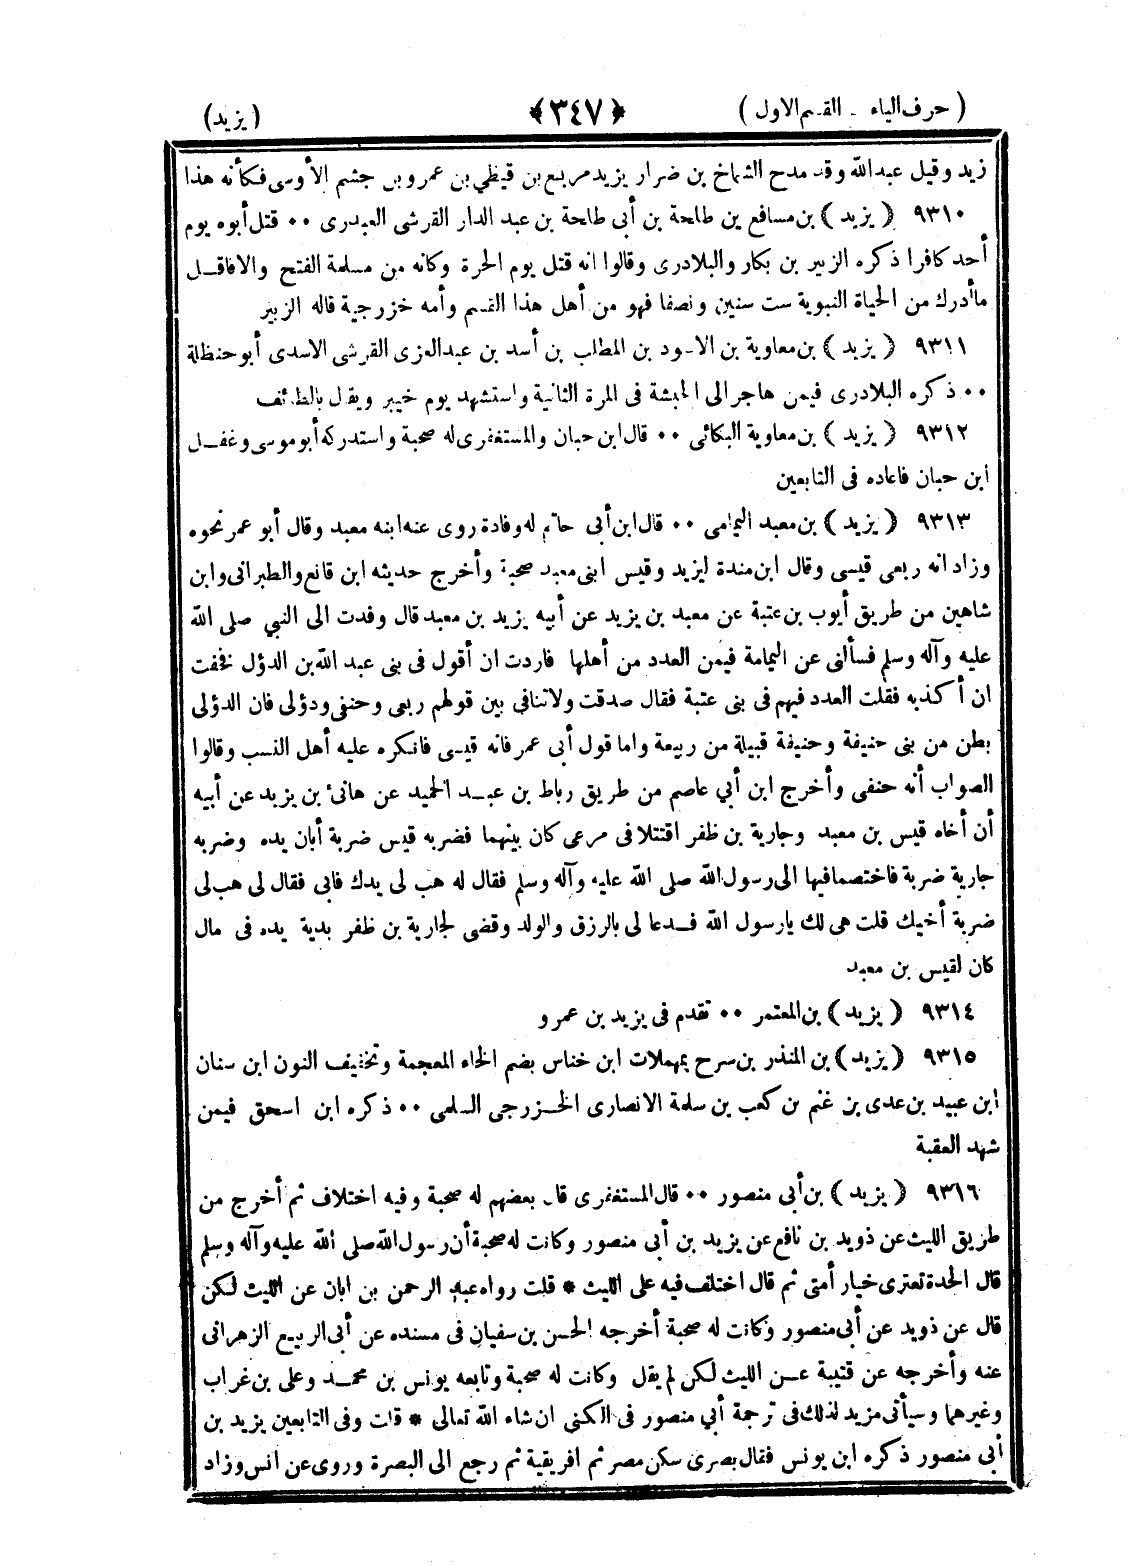 (حرف الياء - القسم الاول) ﴿٣٤٧﴾ (يزيد)
زيد وقيل عبد الله وقد مدح الشماخ بن ضرار يزيد مربع بن قيظي بن عمرو بن جشم الأوسى فكأنه هذا
٩٣١٠ ( يزيد ) بن مسافع بن طلحة بن أبى طلحة بن عبد الدار القرشى العبدرى ٠٠ قتل أبوه يوم
أحد كافرا ذكره الزبير بن بكار والبلادرى وقالوا انه قتل يوم الحرة وكانه من مسلمة الفتح والافاقل
ماأدرك من الحياة النبوية ست سنين ونصفا فهو من أهل هذا القسم وأمه خزرجية قاله الزبير
٩٣١١ ( يزيد ) بن معاوية بن الاسود بن المطلب بن أسد بن عبدالعزى القرشى الاسدى أبوحنظلة
٠٠ ذكره البلادرى فيمن هاجر الى الحبشة فى المرة الثانية واستشهد يوم خيبر ويقال بالطائف
٩٣١٢ ( يزيد ) بن معاوية البكائى ٠٠ قال ابن حبان والمستغفرى له صحبة واستدركه أبوموسى وغفل
ابن حبان فاعاده فى التابعين
٩٣١٣ ( يزيد ) بن معبد اليمامى ٠٠ قال ابن أبى حاتم له وفادة روى عنه ابنه معبد وقال أبو عمر نحوه
وزاد انه ربعى قيسى وقال ابن مندة ليزيد وقيس ابنى معبد صحبة وأخرج حديثه ابن قانع والطبرانى وابن
شاهين من طريق أيوب بن عتبة عن معبد بن يزيد عن أبيه يزيد بن معبد قال وفدت الى النبي صلى الله
عليه وآله وسلم فسألنى عن اليمامة فيمن العدد من أهلها فاردت ان أقول فى بنى عبد الله بن الدؤل فخفت
ان أكذبه فقلت العدد فيهم فى بنى عتبة فقال صدقت ولاتنافى بين قولهم ربعى وحنفى ودؤلى فان الدؤلى
بطن من بنى حنيفة وحنيفة قبيلة من ربيعة واما قول أبى عمر فانه قيسى فانكره عليه أهل النسب وقالوا
الصواب أنه حنفى وأخرج ابن أبي عاصم من طريق رباط بن عبد الحميد عن هانئ بن يزيد عن أبيه
أن أخاه قيس بن معبد وجارية بن ظفر اقتتلا فى مرعى كان بينهما فضربه قيس ضربة أبان يده وضربه
جارية ضربة فاختصما فيها الى رسول الله صلى الله عليه وآله وسلم فقال له هب لى يدك فابى فقال لى هب لى
ضربة أخيك قلت هى لك يارسول الله فدعا لى بالرزق والولد وقضى لجارية بن ظفر بدية يده فى مال
كان لقيس بن معبد
٩٣١٤ ( يزيد ) بن المعتمر ٠٠ تقدم فى يزيد بن عمرو
٩٣١٥ ( يزيد ) بن المنذر بن سرح بمهملات ابن خناس بضم الخاء المعجمة وتخفيف النون ابن سنان
ابن عبيد بن عدى بن غنم بن كعب بن سلمة الانصارى الخزرجى السلمى ٠٠ ذكره ابن اسحق فيمن
شهد العقبة
٩٣١٦ ( يزيد ) بن أبى منصور ٠٠ قال المستغفرى قال بعضهم له صحبة وفيه اختلاف ثم أخرج من
طريق الليث عن ذويد بن نافع عن يزيد بن أبى منصور وكانت له صحبة أن رسول الله صلى الله عليه وآله وسلم
قال الحدة تعترى خيار أمتى ثم قال اختلف فيه على الليث * قلت رواه عبد الرحمن بن ابان عن الليث لكن
قال عن ذويد عن أبى منصور وكانت له صحبة أخرجه الحسن بن سفيان فى مسنده عن أبى الربيع الزهرانى
عنه وأخرجه عن قتيبة عن الليث لكن لم يقل وكانت له صحبة وتابعه يونس بن محمد وعلى بن غراب
وغيرهما وسيأتى مزيد لذلك فى ترجمة أبي منصور فى الكنى ان شاء الله تعالى * قلت وفى التابعين يزيد بن
أبى منصور ذكره ابن يونس فقال بصرى سكن مصر ثم افريقية ثم رجع الى البصرة وروى عن انس وزاد